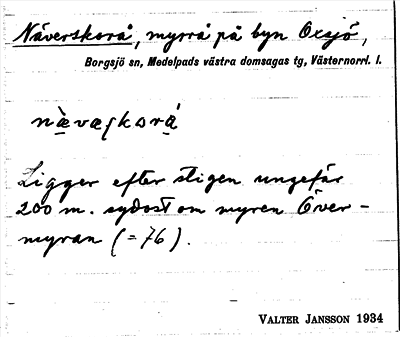 Näverskorå, myrrå på byn Oxsjö,
Borgsjö sn, Medelpads västra domsagas tg, Västernorrl. l.
nàvaʃkorá
Ligger efter stigen ungefär
200 m. sydost om myren Över-
myran (=76).
VALTER JANSSON 1934